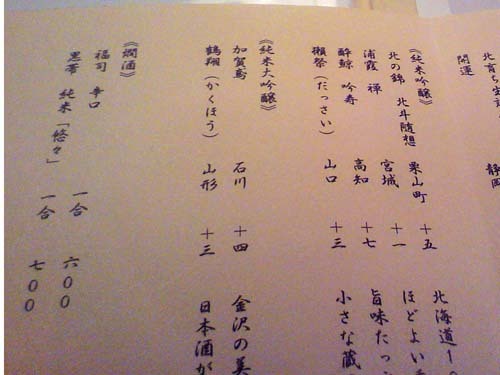 北育ち
開運 静岡
《純米吟醸》
北の錦 北斗随想 栗山町 十五 北海道
浦霞 禅 宮城 十一 ほどよい
酔鯨 吟寿 高知 十七 旨味たっ
獺祭（だっさい） 山口 十三 小さな蔵
《純米大吟醸》
加賀鳶 石川 十四 金沢の美
鶴翔（かくほう） 山形 十三 日本酒が
《燗酒》
福司 辛口 一合 六〇〇
黒帯 純米「悠々」 一合 七〇〇